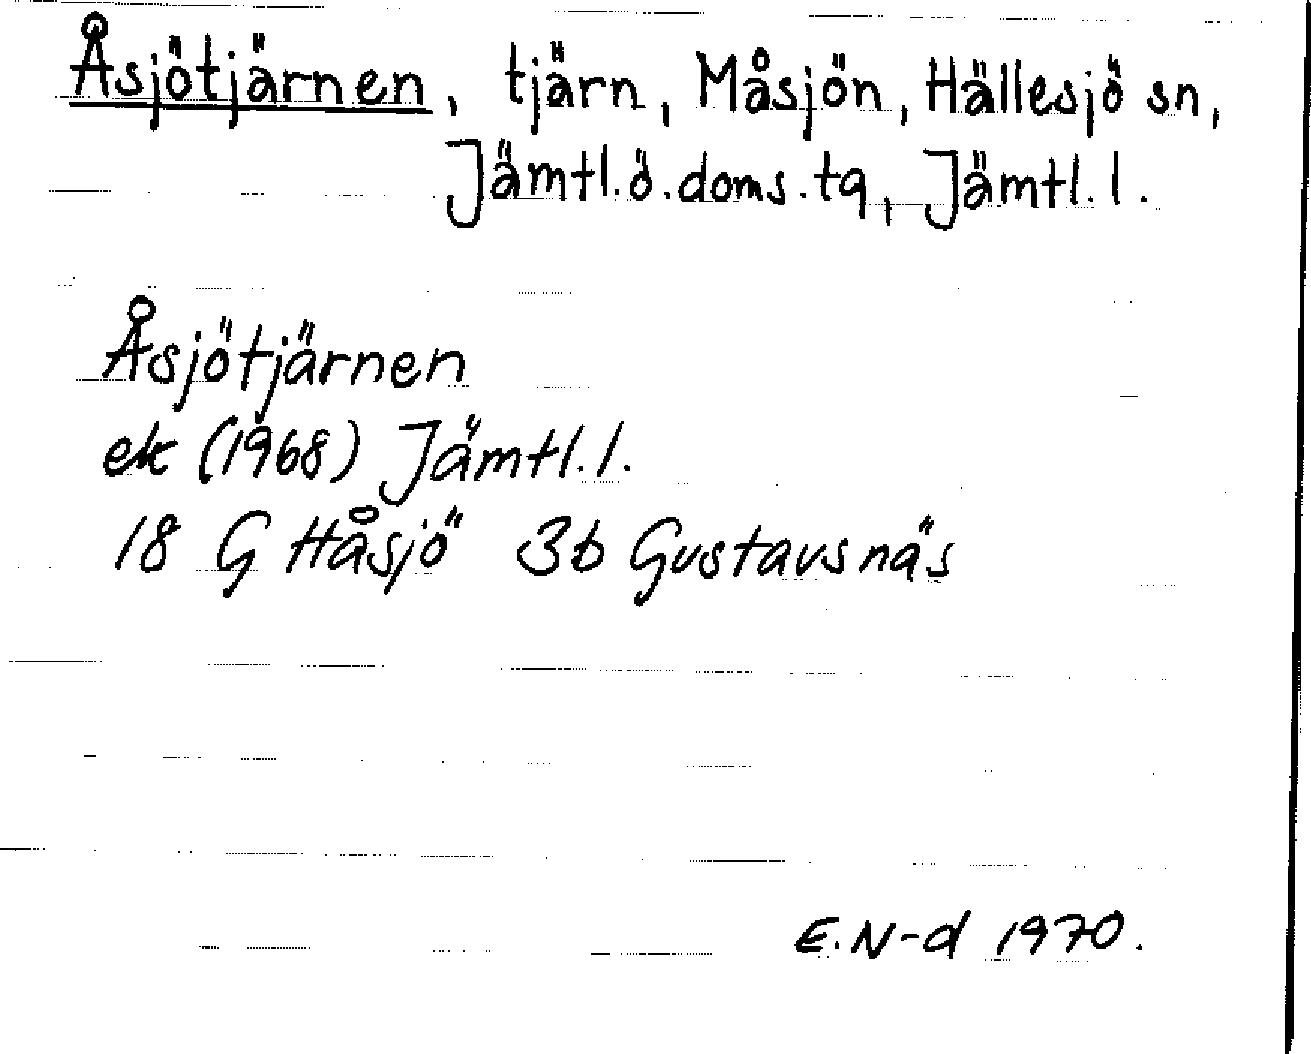 Åsjötjärnen, tjärn, Måsjön, Hällesjö sn,
Jämtl.ö.doms.tg, Jämtl.l.
Åsjötjärnen
ek (1968) Jämtl.l.
18 G Håsjö 3b Gustavsnäs
E.N-d 1970.